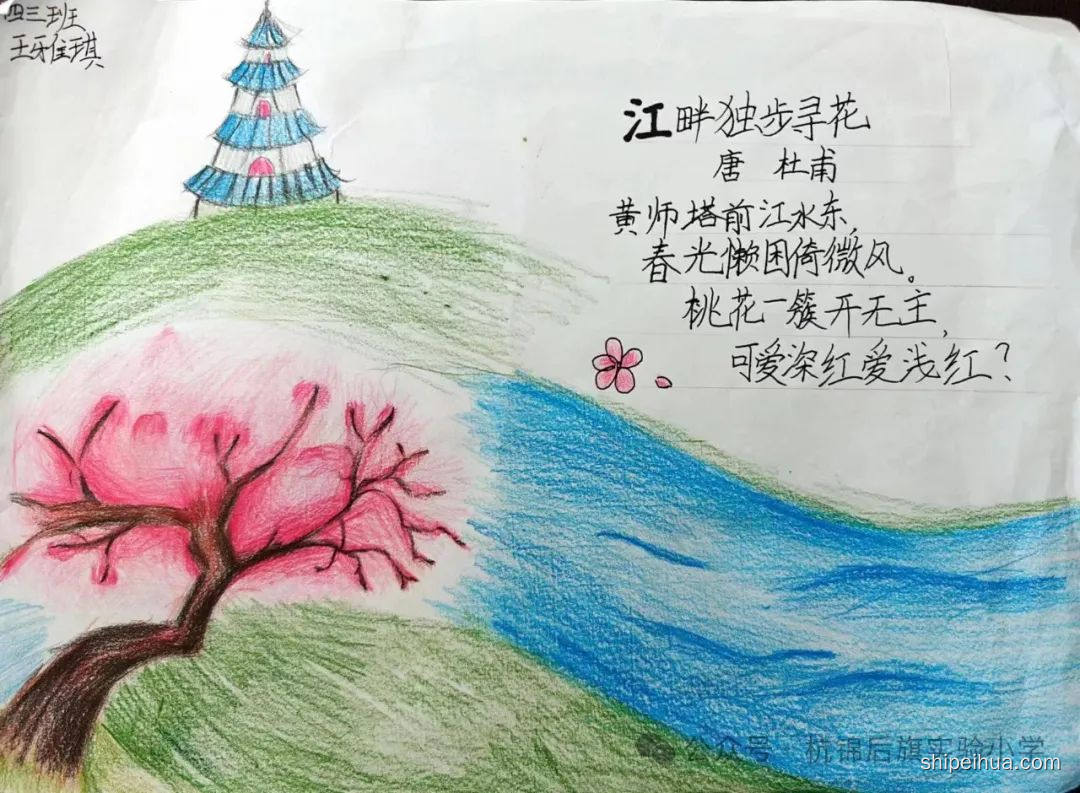 四三班
王雅琪
江畔独步寻花
唐 杜甫
黄师塔前江水东,
春光懒困倚微风。
桃花一簇开无主,
可爱深红爱浅红?
公众号 杭锦后旗实验小学
shipeihua.com